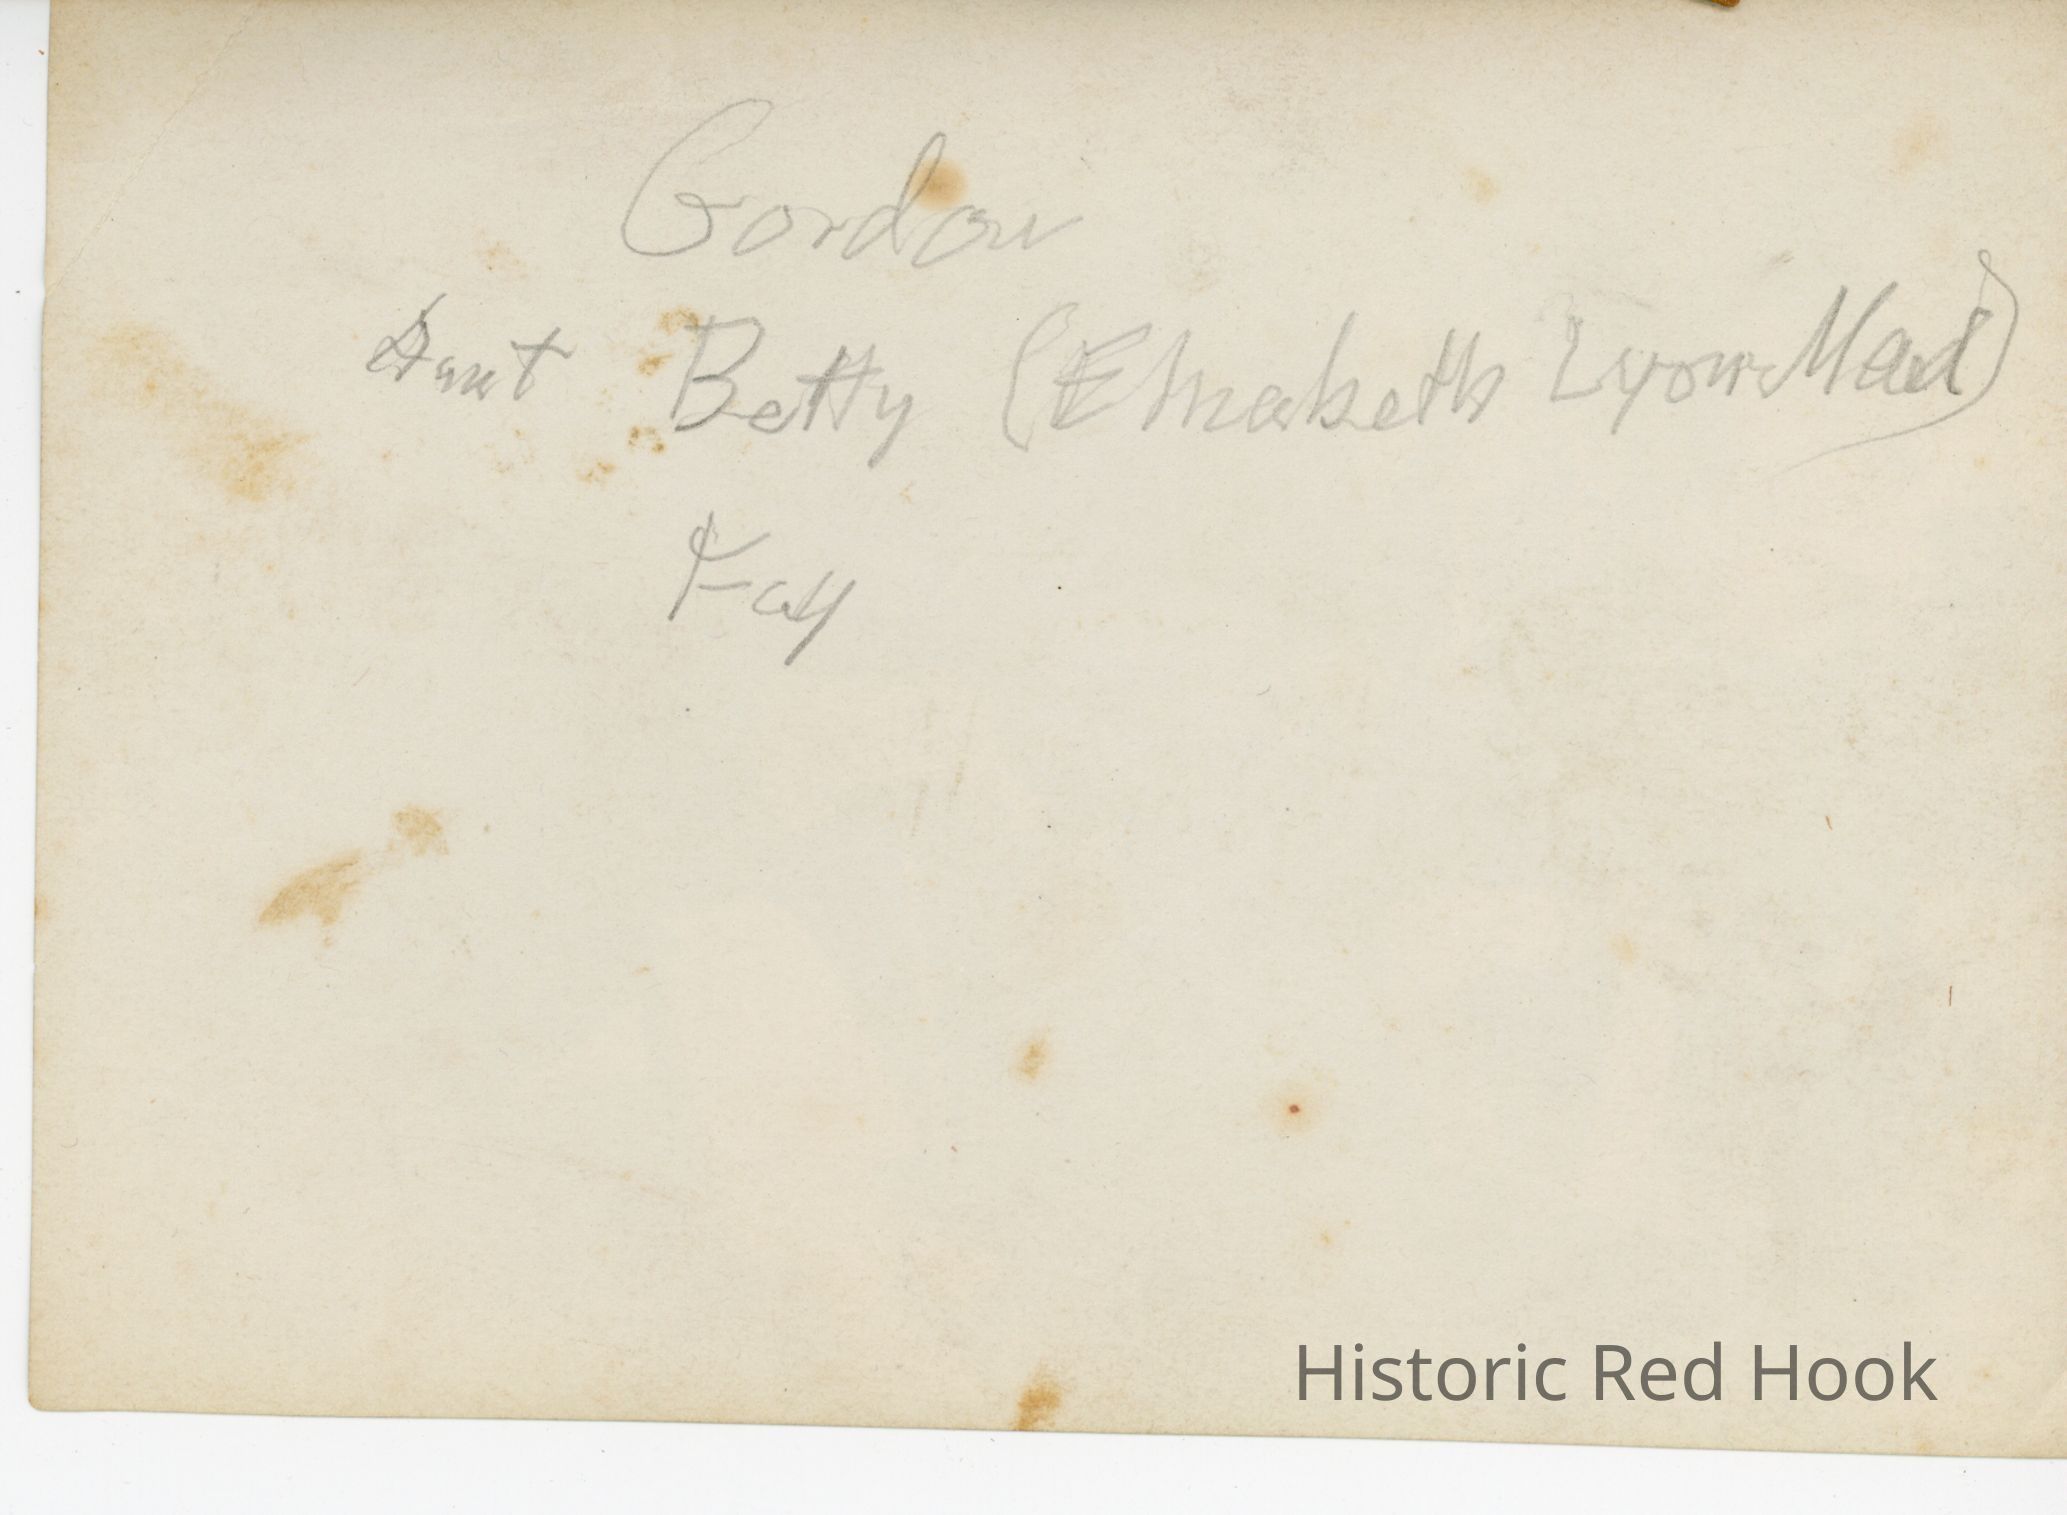 Gordon
Aunt Betty (Elizabeth Lyon
Kay
Historic Red Hook